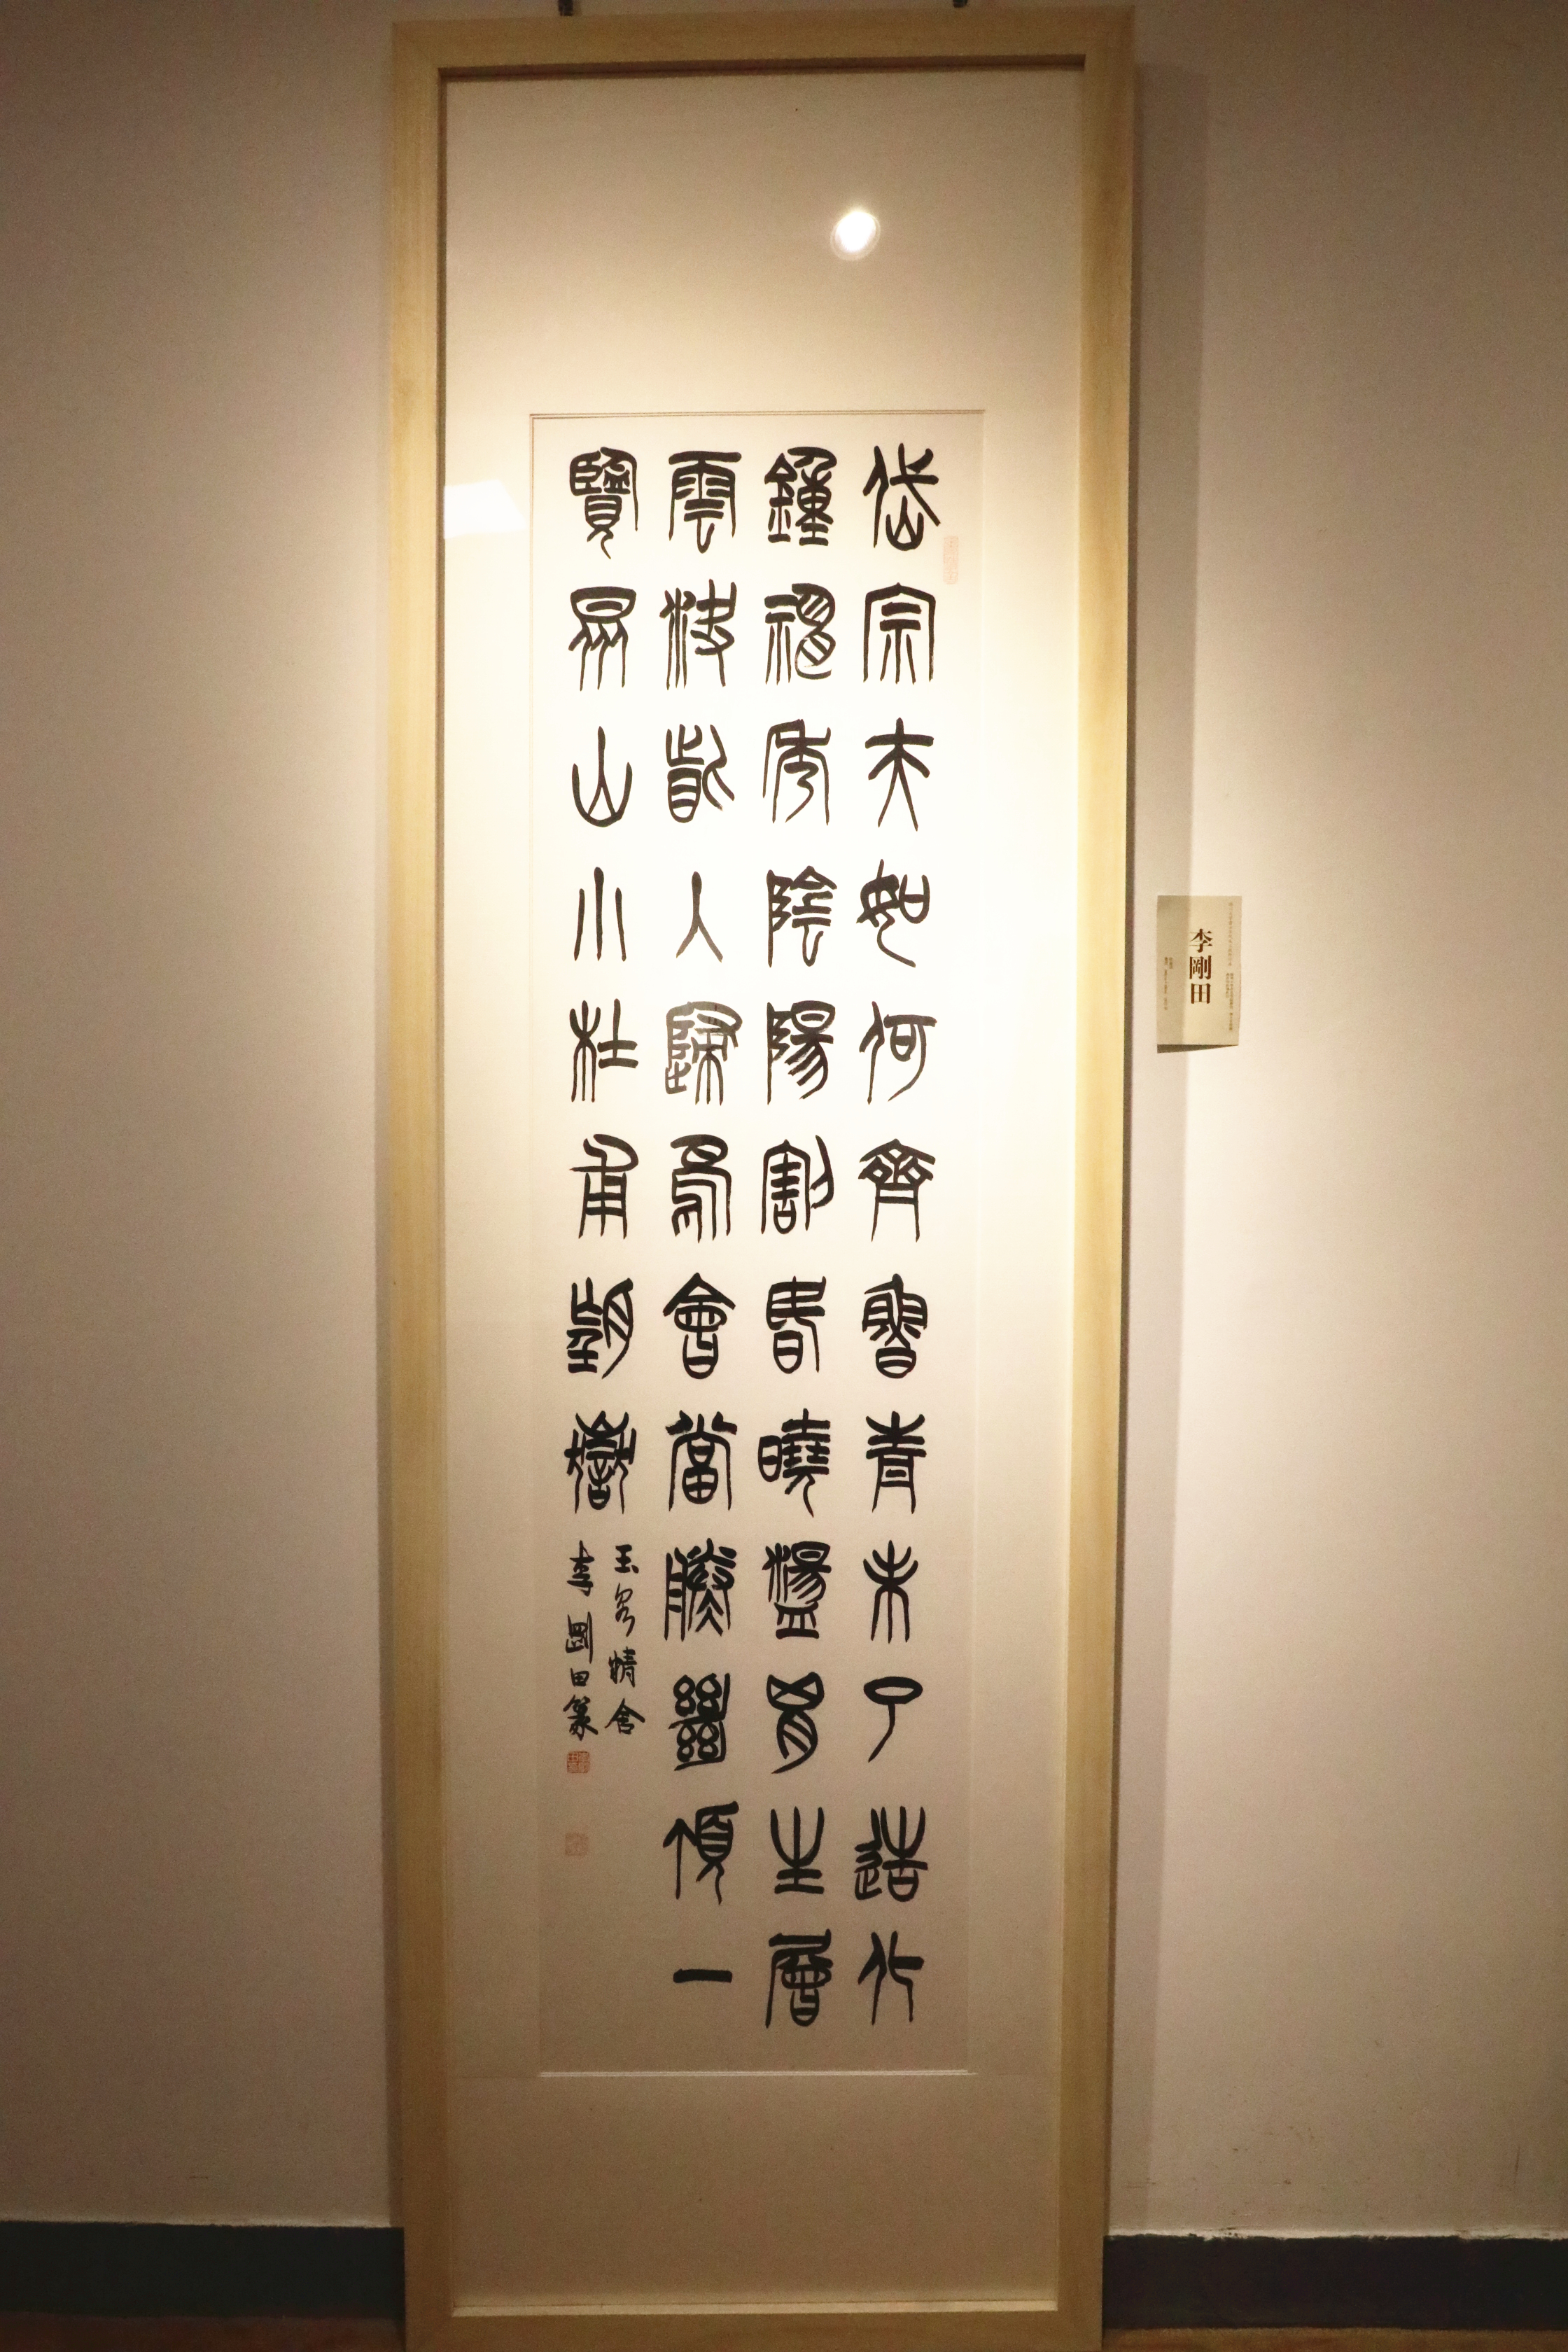 岱宗夫如何齊魯青未了造化
鐘神秀陰陽割昏曉盪胸生層
雲決眥入歸鳥會當凌絕頂一
覽眾山小杜甫望嶽
玉泉精舍
李剛田篆
李剛田